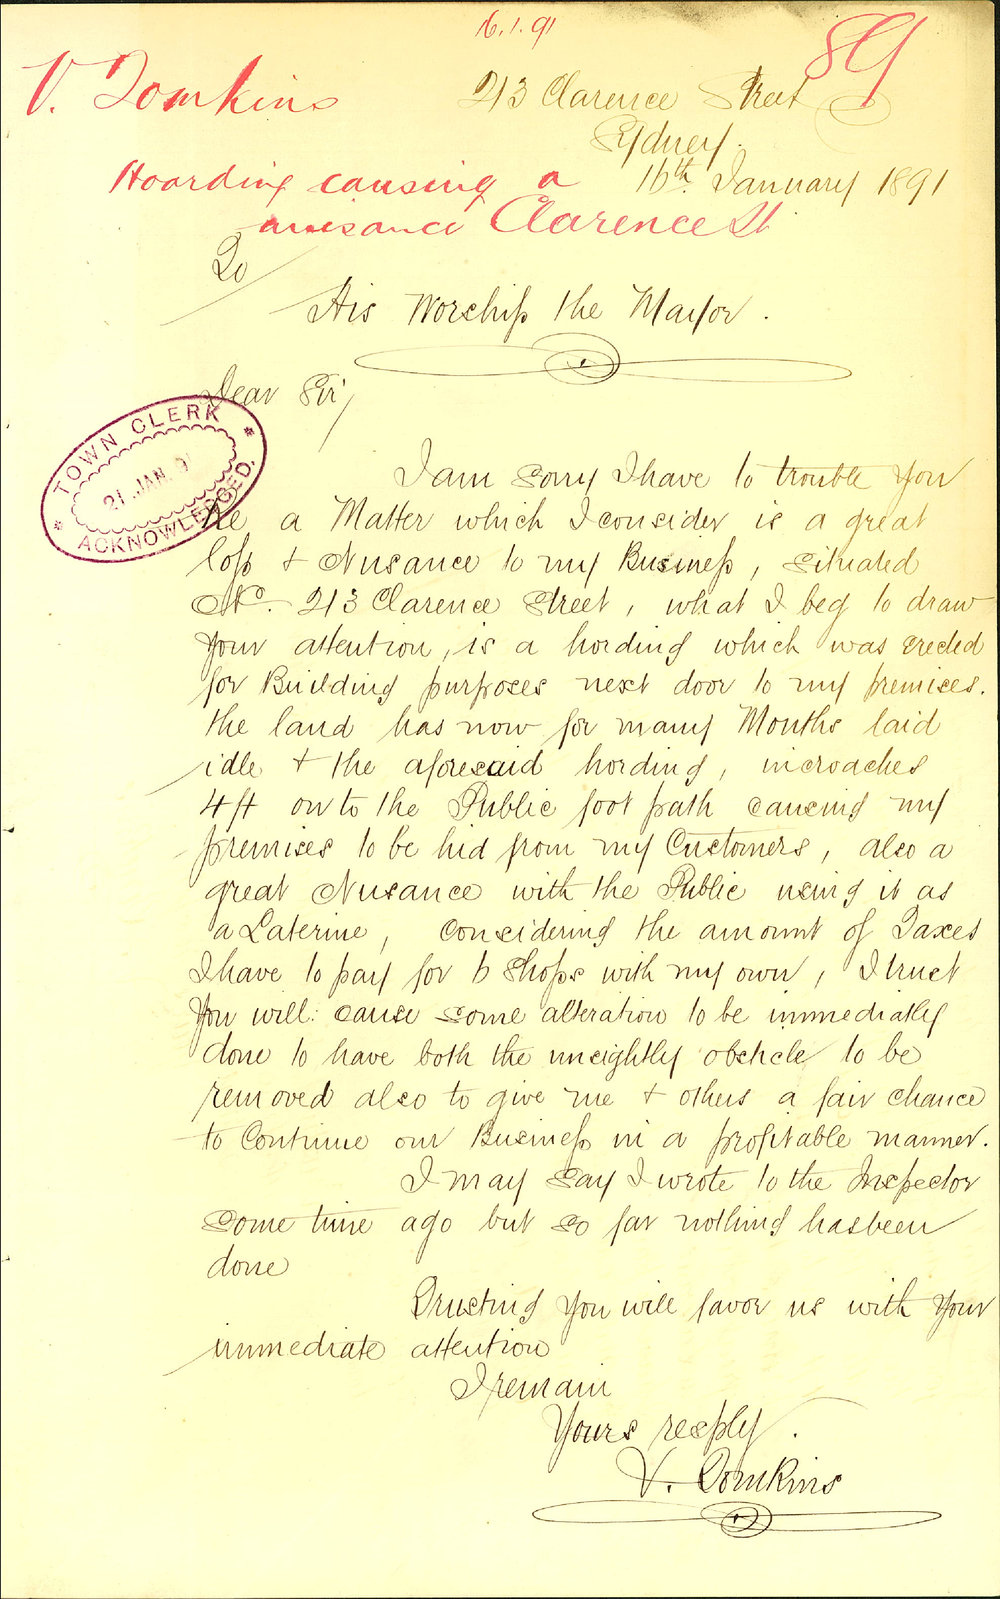 16.1.91
89
V. Tomkins
213 Clarence Street
Sydney.
16th. January 1891
Hoarding causing a
nuisance Clarence St
To
His Worship the Mayor.
Dear Sir,
TOWN CLERK
21 JAN. 91
ACKNOWLEDGED.
I am sorry I have to trouble you
Re a Matter which I consider is a great
loss & Nusance to my Business, situated
No. 213 Clarence Street, what I beg to draw
your attention, is a hording which was erected
for Building purposes next door to my premises.
the land has now for many Months laid
idle & the aforesaid hording, incroaches
4ft on to the Public foot path causing my
premises to be hid from my Customers, also a
great Nusance with the Public using it as
a Laterine, considering the amount of Taxes
I have to pay for 6 Shops with my own, I trust
you will cause some alteration to be immediatly
done to have both the unsightly obsticle to be
removed also to give me & others a fair chance
to Continue our Business in a profitable manner.
I may say I wrote to the Inspector
some time ago but so far nothing has been
done
Trusting you will favor us with your
immediate attention
I remain
Yours resply.
V. Tomkins